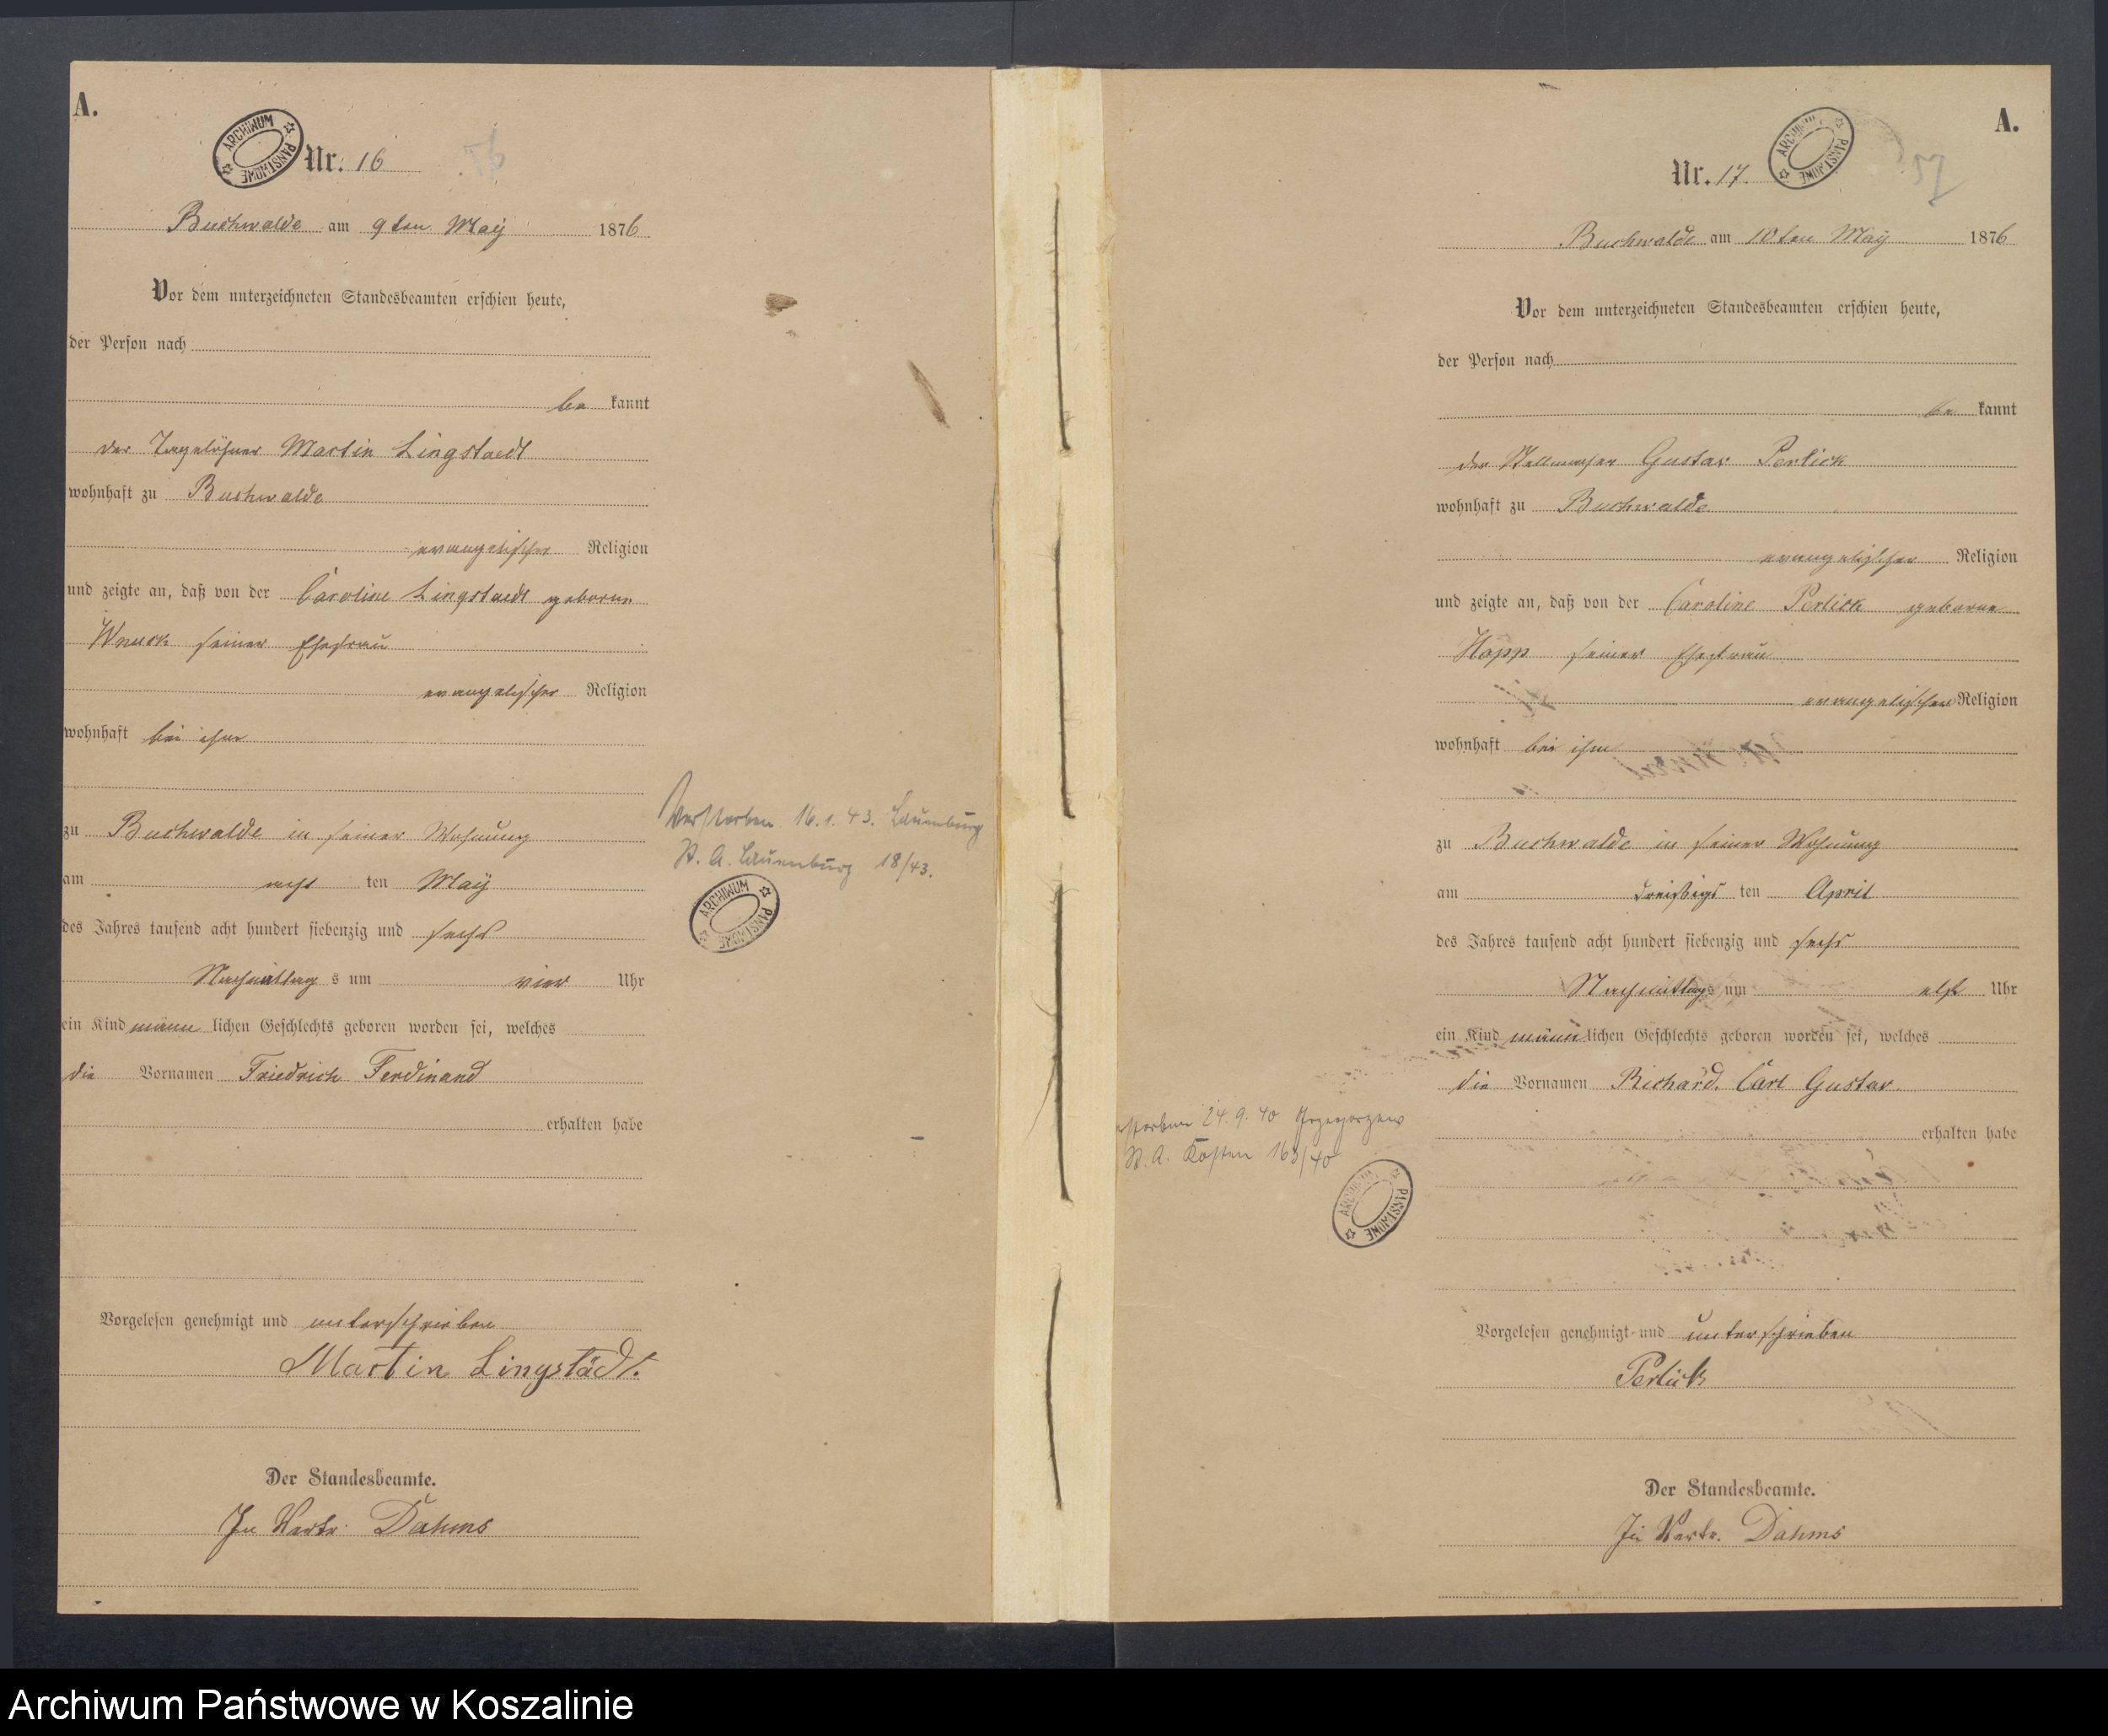 A.
ARCHIWUM PAŃSTWOWE
Nr. 16
Buchwalde am 9ten May 1876
Vor dem unterzeichneten Standesbeamten erschien heute,
der Person nach
be kannt
der Tagelöhner Martin Lingstaedt
wohnhaft zu Buchwalde
evangelischer Religion
und zeigte an, daß von der Caroline Lingstaedt geborne
Wnuck seiner Ehefrau
evangelischer Religion
wohnhaft bei ihm
zu Buchwalde in seiner Wohnung
am acht ten May
des Jahres tausend acht hundert siebenzig und sechs
Nachmittag s um vier Uhr
ein Kind männ lichen Geschlechts geboren worden sei, welches
die Vornamen Friedrich Ferdinand
erhalten habe
Vorgelesen genehmigt und unterschrieben
Martin Lingstädt.
Der Standesbeamte.
In Vertr. Dahms
Verstorben 16.1.43. Lauenburg
St. A. Lauenburg 18/43.
ARCHIWUM PAŃSTWOWE
A.
ARCHIWUM PAŃSTWOWE
Nr. 17.
Buchwalde am 10ten May 1876
Vor dem unterzeichneten Standesbeamten erschien heute,
der Person nach
be kannt
der Stellmacher Gustav Perlick
wohnhaft zu Buchwalde
evangelischer Religion
und zeigte an, daß von der Caroline Perlick geborne
Hopp seiner Ehefrau
evangelischer Religion
wohnhaft bei ihm
zu Buchwalde in seiner Wohnung
am dreißigs ten April
des Jahres tausend acht hundert siebenzig und sechs
Nachmittags um elf Uhr
ein Kind männlichen Geschlechts geboren worden sei, welches
die Vornamen Richard Carl Gustav
erhalten habe
Vorgelesen genehmigt und unterschrieben
Perlick
Der Standesbeamte.
In Vertr. Dahms
rstorben 24.9.40
St. A. Kosten 163/40
ARCHIWUM PAŃSTWOWE
Archiwum Państwowe w Koszalinie